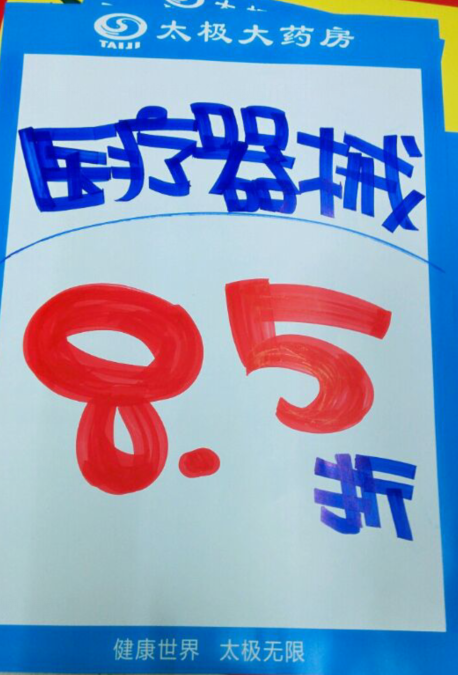 TAIJI 太极大药房
医疗器械
8.5
折
健康世界 太极无限